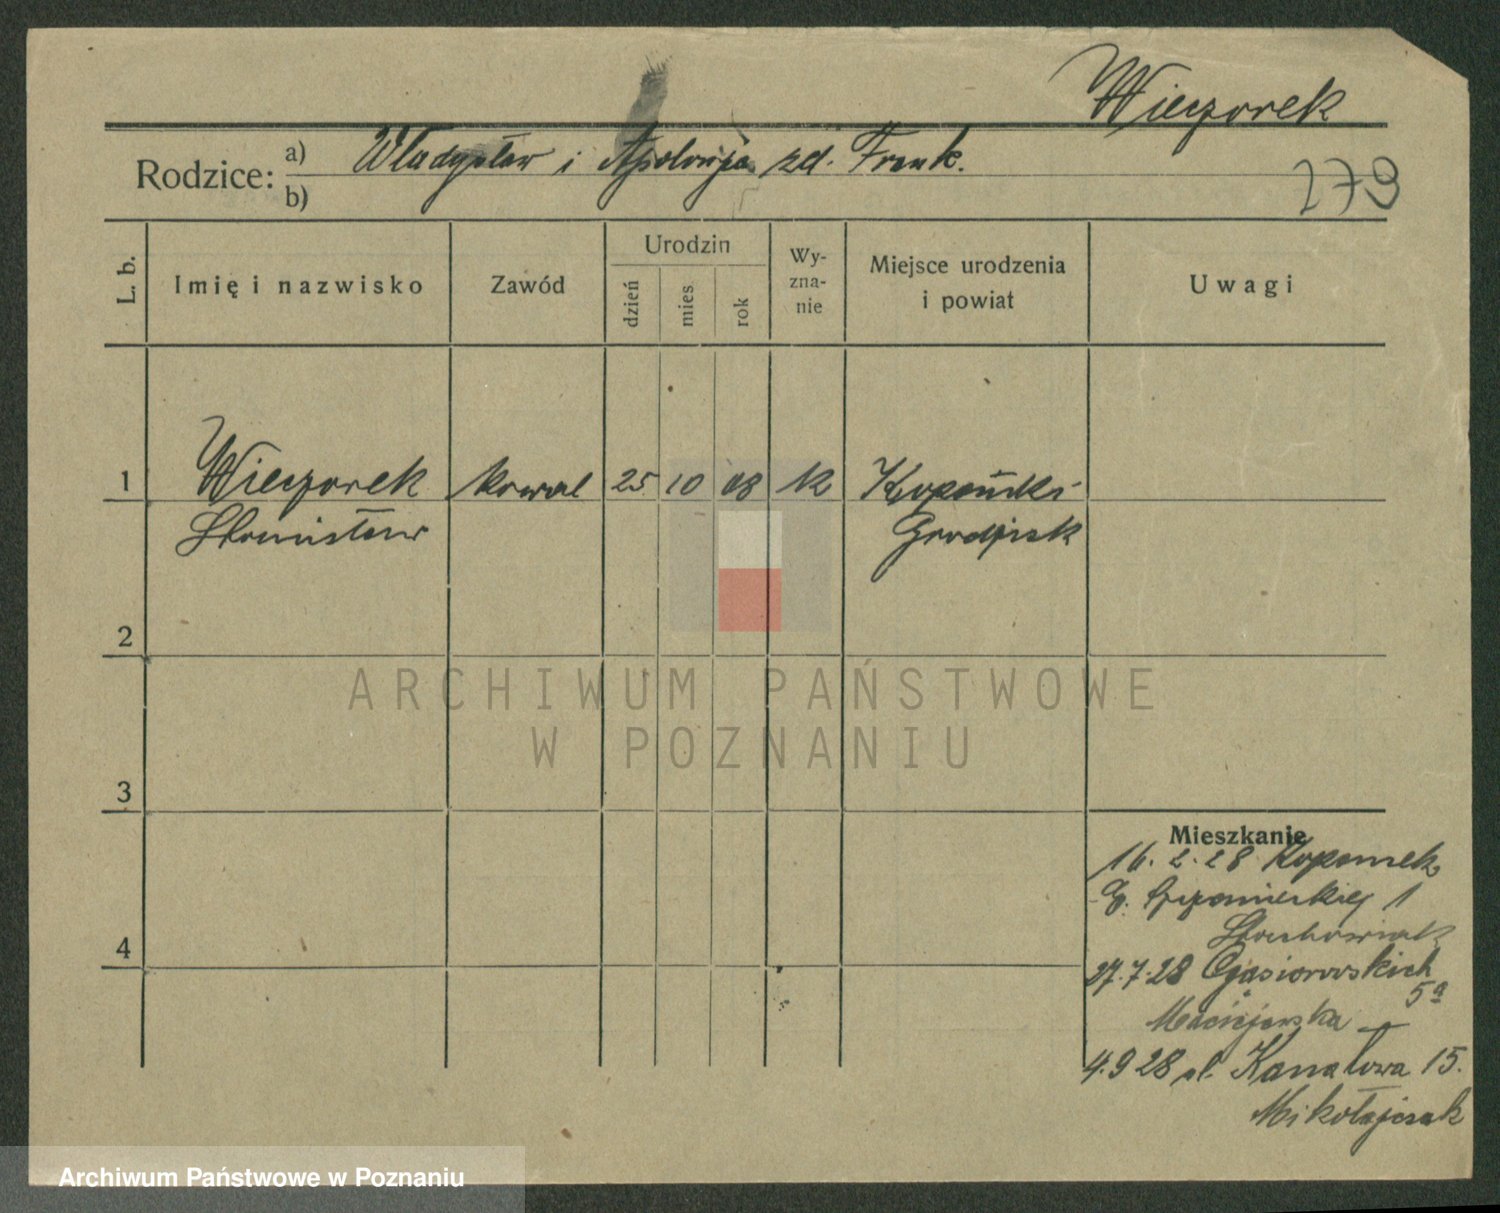 Wieczorek
Rodzice: a) Władysław i Apolonja zd. Frank.
b)
279
L. b.
Imię i nazwisko
Zawód
Urodzin
dzień
mies
rok
Wy-
zna-
nie
Miejsce urodzenia
i powiat
Uwagi
1 Wieczorek kowal 25 10 08 k
Stanisław Grodzisk
2
3
4
Mieszkanie
16. 2. 28
1
27.7.28 Gąsiorowskich
5a
Maciejewska
4.9 28 ul. Kanałowa 15.
Mikołajczak
ARCHIWUM PAŃSTWOWE
W POZNANIU
Archiwum Państwowe w Poznaniu